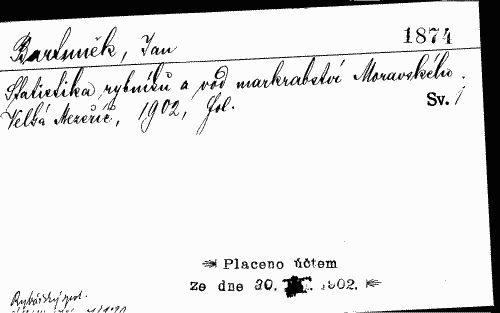 Bartuněk, Jan
1874
Statistika rybníků a vod markrabství Moravského.
Velká Mezeříč, 1902, fol.
Sv. 1
Placeno účtem
Ze dne 30. 1902.
Rybářský